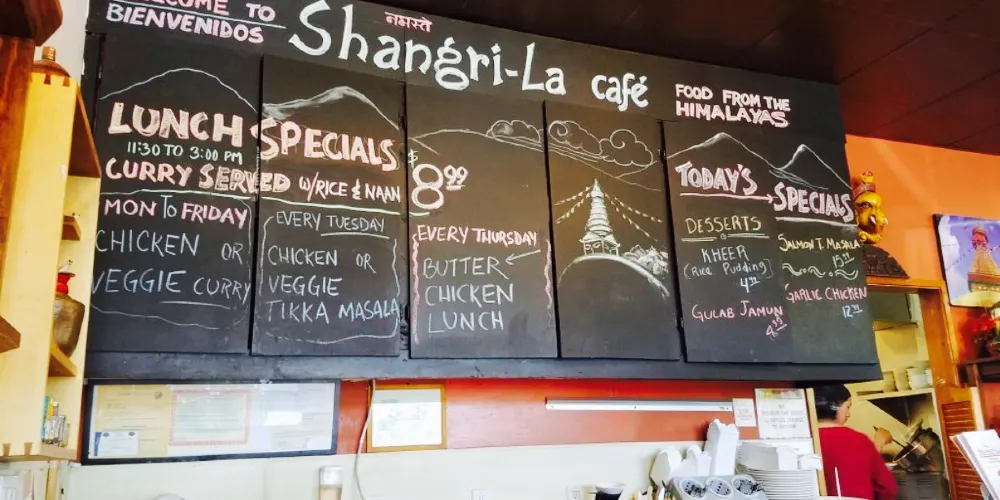 WELCOME TO
BIENVENIDOS
नमस्ते
Shangri-La café
FOOD FROM THE
HIMALAYAS
LUNCH SPECIALS
11:30 TO 3:00 PM
$8.99
CURRY SERVED W/RICE & NAAN
MON TO FRIDAY
CHICKEN OR
VEGGIE CURRY
EVERY TUESDAY
CHICKEN OR
VEGGIE
TIKKA MASALA
EVERY THURSDAY
BUTTER
CHICKEN
LUNCH
TODAY'S SPECIALS
DESSERTS
KHEER
(Rice Pudding)
4.99
GULAB JAMUN
4.99
SALMON T. MASALA
15.99
GARLIC CHICKEN
12.99